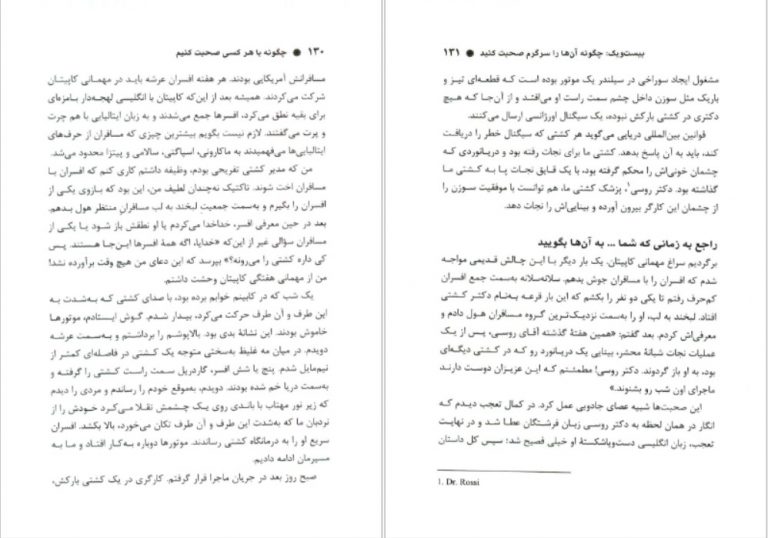 ۱۳۰ ● چگونه با هر کسی صحبت کنیم
مسافرانش آمریکایی بودند. هر هفته افسران عرشه باید در مهمانی کاپیتان
شرکت می‌کردند. همیشه بعد از این‌که کاپیتان با انگلیسی لهجه‌دار بامزه‌ای
برای بقیه نطق می‌کرد، افسرها جمع می‌شدند و به زبان ایتالیایی با هم چرت
و پرت می‌گفتند. لازم نیست بگویم بیشترین چیزی که مسافران از حرف‌های
ایتالیایی‌ها می‌فهمیدند به ماکارونی، اسپاگتی، سالامی و پیتزا محدود می‌شد.
من که مدیر کشتی تفریحی بودم، وظیفه داشتم کاری کنم که افسران با
مسافران اخت شوند. تاکتیک نه‌چندان لطیف من، این بود که بازوی یکی از
افسران را بگیرم و به‌سمت جمعیت لبخند به لب مسافران منتظر هول بدهم.
بعد در حین معرفی افسر، خداخدا می‌کردم یا او نطقش باز شود یا یکی از
مسافران سؤالی غیر از این‌که «خدایا، اگه همهٔ افسرها این‌جا هستند، پس
کی داره کشتی را می‌رونه؟» بپرسد که این دعای من هیچ وقت برآورده نشد!
من از مهمانی هفتگی کاپیتان وحشت داشتم.
یک شب که در کابینم خوابم برده بود، با صدای کشتی که به‌شدت به
این طرف و آن طرف حرکت می‌کرد، بیدار شدم. گوش ایستادم، موتورها
خاموش بودند. این نشانهٔ بدی بود. بالاپوشم را برداشتم و به‌سمت عرشه
دویدم. در میان مه غلیظ به‌سختی متوجه یک کشتی در فاصله‌ای کمتر از
نیم‌مایل شدم. پنج یا شش افسر، گاردریل سمت راست کشتی را گرفته و
به‌سمت دریا خم شده بودند. دویدم، به‌موقع خودم را رساندم و مردی را دیدم
که زیر نور مهتاب با باندی روی یک چشمش تقلا می‌کرد خودش را از
نردبان ما که به‌شدت این طرف و آن طرف تکان می‌خورد، بالا بکشد. افسران
سریع او را به درمانگاه کشتی رساندند. موتورها دوباره به‌کار افتاد و ما به
مسیرمان ادامه دادیم.
صبح روز بعد در جریان ماجرا قرار گرفتم. کارگری در یک کشتی بارکش،
بیست‌ویک: چگونه آن‌ها را سرگرم صحبت کنید ● ۱۳۱
مشغول ایجاد سوراخی در سیلندر یک موتور بوده است که قطعه‌ای تیز و
باریک مثل سوزن داخل چشم سمت راست او می‌افتد و از آن‌جا که هیچ
دکتری در کشتی بارکش نبوده، یک سیگنال اورژانسی ارسال می‌کنند.
قوانین بین‌المللی دریایی می‌گوید هر کشتی که سیگنال خطر را دریافت
کند، باید به آن پاسخ بدهد. کشتی ما برای نجات رفته بود و دریانوردی که
چشمان خونی‌اش را محکم گرفته بود، با یک قایق نجات پا به کشتی ما
گذاشته بود. دکتر روسی۱، پزشک کشتی ما، هم توانست با موفقیت سوزن را
از چشمان این کارگر بیرون آورده و بینایی‌اش را نجات دهد.
راجع به زمانی که شما ... به آن‌ها بگویید
برگردیم سراغ مهمانی کاپیتان. یک بار دیگر با این چالش قدیمی مواجه
شدم که افسران را با مسافران جوش بدهم. سلانه‌سلانه به‌سمت جمع افسران
کم‌حرف رفتم تا یکی دو نفر را بکشم که این بار قرعه به‌نام دکتر کشتی
افتاد. لبخند به لب، او را به‌سمت نزدیک‌ترین گروه مسافران هول دادم و
معرفی‌اش کردم. بعد گفتم: «همین هفتهٔ گذشته آقای روسی، پس از یک
عملیات نجات شبانهٔ محشر، بینایی یک دریانورد رو که در کشتی دیگه‌ای
بود، به او باز گردوند. دکتر روسی! مطمئنم که این عزیزان دوست دارند
ماجرای اون شب رو بشنوند.»
این صحبت‌ها شبیه عصای جادویی عمل کرد. در کمال تعجب دیدم که
انگار در همان لحظه به دکتر روسی زبان فرشتگان عطا شد و در نهایت
تعجب، زبان انگلیسی دست‌وپاشکستهٔ او خیلی فصیح شد؛ سپس کل داستان
1. Dr. Rossi